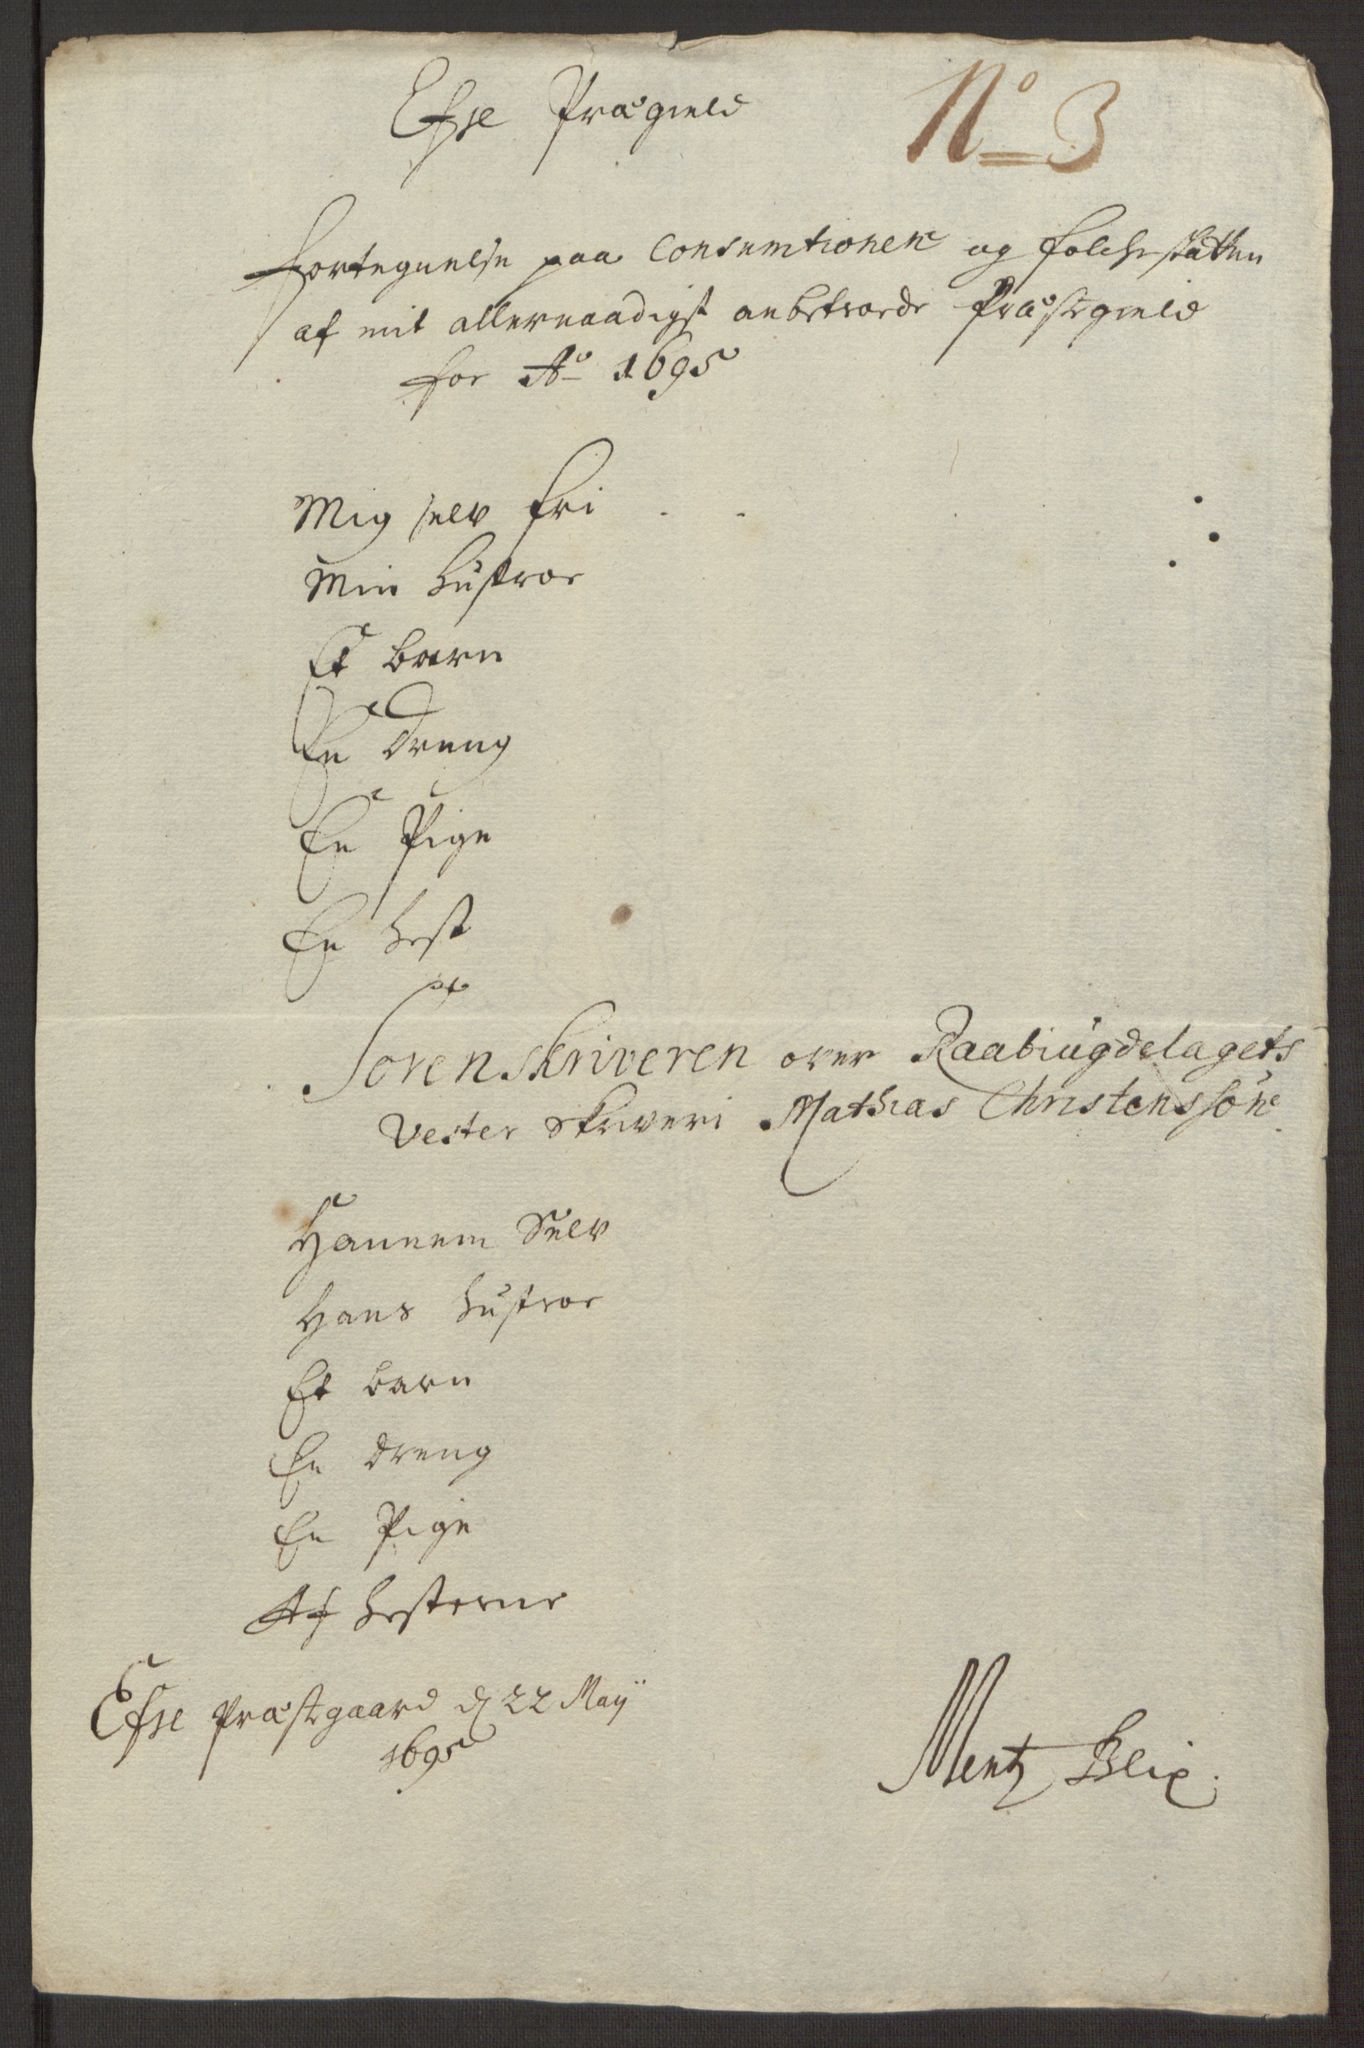 Efie Præ gield
No 3
Fortegnelse paa Consumtionen og folcheskatten
af mit allernaadigst anbetroede Præstegield
for Ao 1695
Mig selv fri
Min hustroe
Et barn
En Dreng
En Pige
En hest
Sorenskriveren over Raabiugdelagets
Vester Skriveri Mathias Christenssøn
Hannem Selv
Hans hustroe
Et barn
En dreng
En Pige
Af hesterne
Efie Præstegaard d 22 Maÿ
1695
Mentz Blix